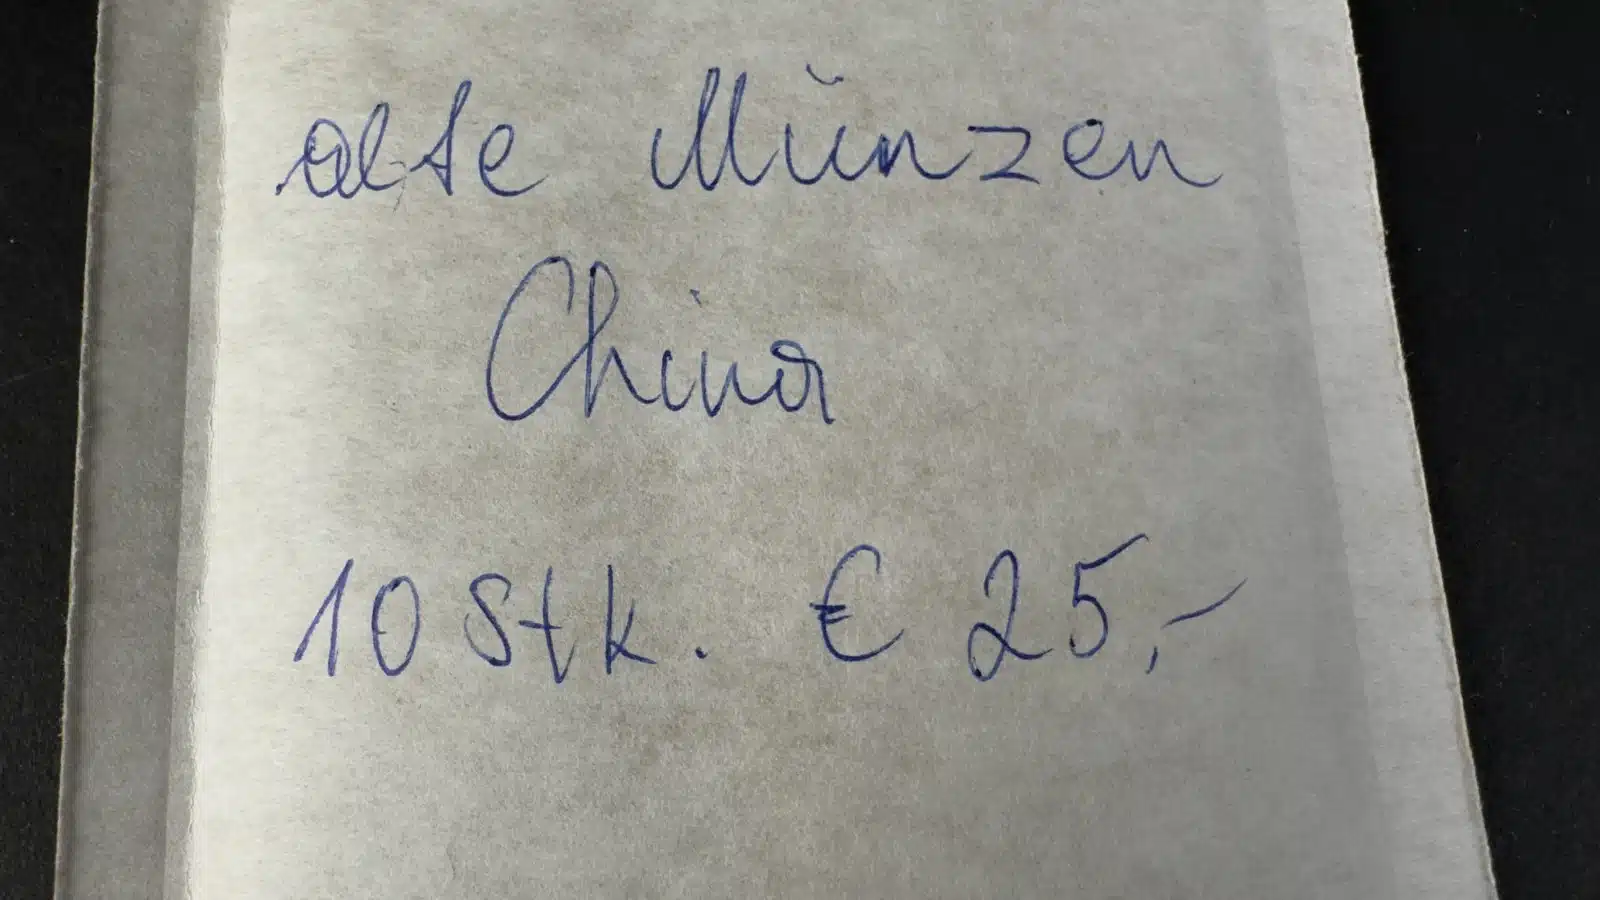 alte Münzen
China
10 Stk. € 25,-